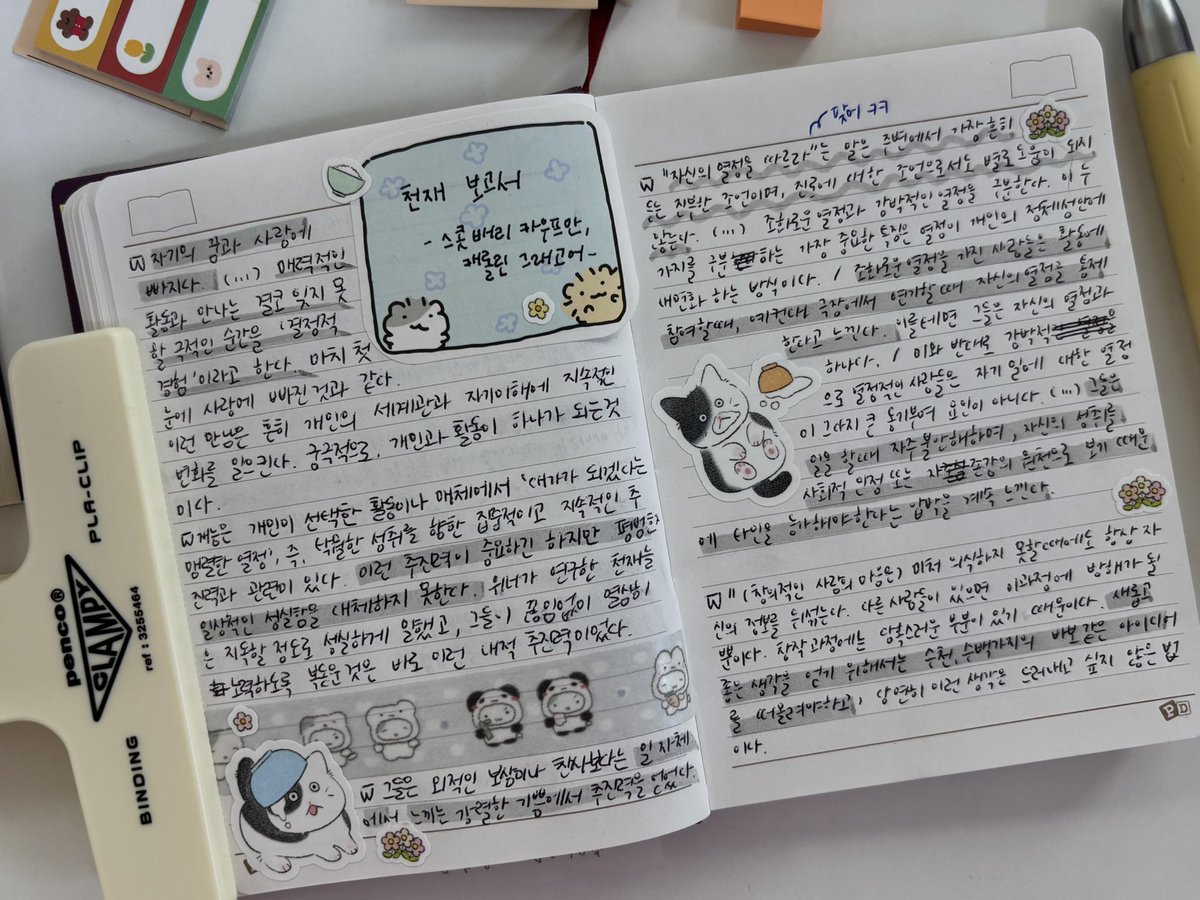 천재 보고서
- 스콧 배리 카우프만,
캐롤린 그레고어 -
자기의 꿈과 사랑에
빠지다. (...) 매력적인
활동과 만나는 결코 잊지 못
할 극적인 순간을 '결정적
경험'이라고 한다. 마치 첫
눈에 사랑에 빠진것과 같다.
이런 만남은 흔히 개인의 세계관과 자기이해에 지속적인
변화를 일으킨다. 궁극적으로, 개인과 활동이 하나가 되는것
이다.
재능은 개인이 선택한 활동이나 매체에서 '대가가 되겠다는
맹렬한 열정', 즉, 탁월한 성취를 향한 집중적이고 지속적인 추
진력과 관련이 있다. 이런 추진력이 중요하긴 하지만 평범한
일상적인 성실함을 대체하지 못한다. 위너가 연구한 천재들
은 지독할 정도로 성실하게 일했고, 그들이 끊임없이 열심히
노력하도록 북돋운것은 바로 이런 내적 추진력이었다.
그들은 외적인 보상이나 찬사보다는 일 자체
에서 느끼는 강렬한 기쁨에서 추진력을 얻었다.
맞어 ㅋㅋ
"자신의 열정을 따르라"는 말은 주변에서 가장 흔히
듣는 진부한 조언이며, 진로에 대한 조언으로서도 별로 도움이 되지
않는다. (...) 조화로운 열정과 강박적인 열정을 구분한다. 이 두
가지를 구분하는 가장 중요한 특징은 열정이 개인의 정체성안에
내면화 하는 방식이다. / 조화로운 열정을 가진 사람들은 활동에
참여할때, 예컨대 극장에서 연기할때 자신의 열정을 통제
한다고 느낀다. 이를테면 그들은 자신의 열정과
하나다. / 이와 반대로 강박적
으로 열정적인 사람들은 자기 일에 대한 열정
이 그다지 큰 동기부여 요인이 아니다. (...) 그들은
일을 할때 자주 불안해하며, 자신의 성취를
사회적 인정 또는 자존감의 원천으로 보기 때문
에 타인을 능가해야한다는 압박을 계속 느낀다.
" (창의적인 사람의 마음은) 미처 의식하지 못할때에도 항상 자
신의 정보를 뒤섞는다. 다른 사람들이 있으면 이과정에 방해가 될
뿐이다. 창작 과정에는 당혹스러운 부분이 있기 때문이다. 새롭고
좋은 생각을 얻기 위해서는 수천, 수백가지의 바보 같은 아이디어
를 떠올려야하고, 당연히 이런 생각은 드러내고 싶지 않은 법
이다.
PD
penco®
CLAMPY
PLA-CLIP
BINDING
ref : 3255464